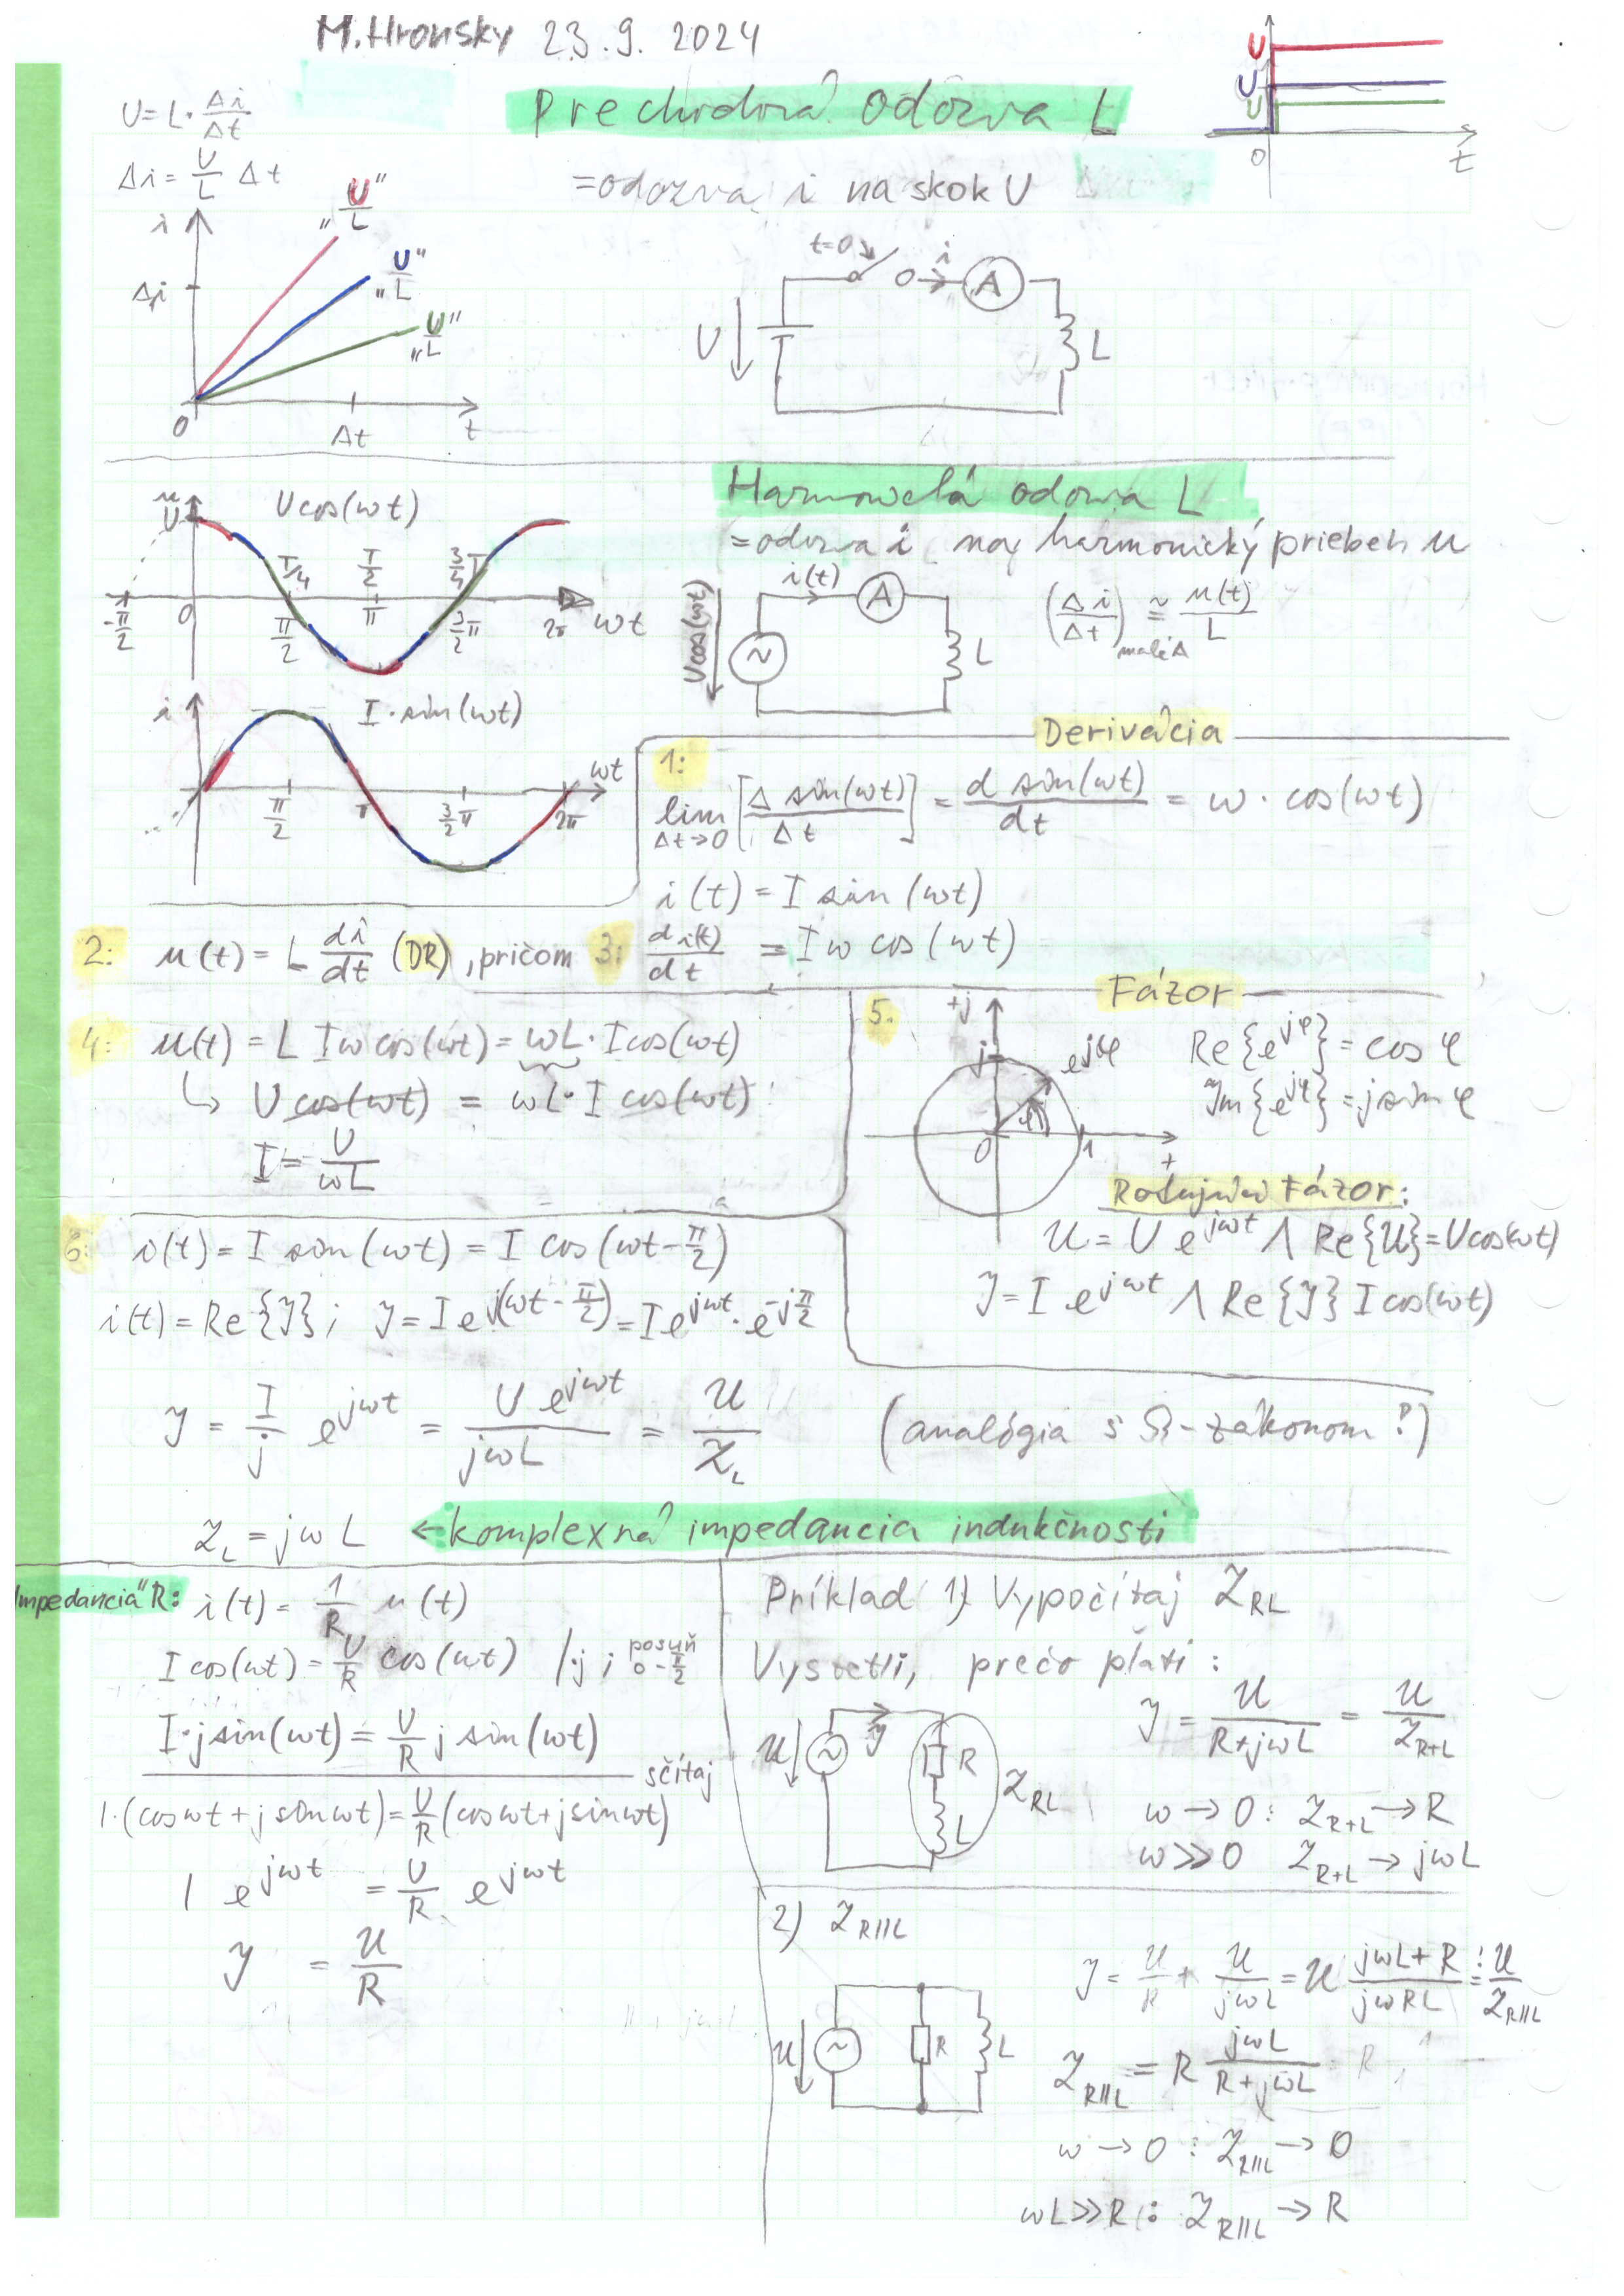 M.Hronsky 23.9. 2024
Prechodová odozva L
=odozva i na skok U
U=L·Δi/Δt
Δi = U/L Δt
i
"U/L"
"U/L"
"U/L"
Δi
0
Δt
t
U
U
U
0
t
t=0
i
A
U
L
Harmonická odozva L
=odozva i na harmonický priebeh u
u
U
U cos(ωt)
T/4
T/2
3/4 T
-π/2
0
π/2
π
3/2π
2π
ωt
i(t)
A
U cos(ωt)
~
L
(Δi/Δt) malé Δ ≅ u(t)/L
i
I·sin(ωt)
π/2
π
3/2π
2π
ωt
Derivácia
1:
lim Δt→0 [Δ sin(ωt)/Δt] = d sin(ωt)/dt = ω · cos(ωt)
i(t) = I sin(ωt)
2: u(t) = L di/dt (DR), pričom 3: di(t)/dt = Iω cos(ωt)
4: u(t) = L Iω cos(ωt) = ωL · I cos(ωt)
↳ U cos(ωt) = ωL · I cos(ωt)
I = U/ωL
5.
Fázor
+j
j
e^jφ
φ
0
1
+
Re{e^jφ} = cos φ
Im{e^jφ} = j sin φ
Rotujúci Fázor:
U = U e^jωt ∧ Re{U} = U cos(ωt)
I = I e^jωt ∧ Re{I} I cos(ωt)
6: i(t) = I sin(ωt) = I cos(ωt - π/2)
i(t) = Re{I}; I = I e^j(ωt - π/2) = I e^jωt · e^-jπ/2
I = I/j e^jωt = U e^jωt / jωL = U/Z_L
(analógia s Ω-zákonom?)
Z_L = jωL ← komplexná impedancia indukčnosti
Impedancia" R: i(t) = 1/R u(t)
I cos(ωt) = U/R cos(ωt) /·j ; posuň o -π/2
I·j sin(ωt) = U/R j sin(ωt)
sčítaj
I·(cosωt + j sinωt) = U/R (cosωt + j sinωt)
I e^jωt = U/R e^jωt
I = U/R
Príklad 1) Vypočítaj Z_RL
Vysvetli, prečo platí:
U
~
I
R
L
Z_RL
I = U/(R+jωL) = U/Z_R+L
ω → 0 : Z_R+L → R
ω ≫ 0 Z_R+L → jωL
2) Z_R||L
U
~
R
L
I = U/R + U/jωL = U (jωL+R)/(jωRL) = U/Z_R||L
Z_R||L = R jωL/(R+jωL)
ω → 0 : Z_R||L → 0
ωL ≫ R : Z_R||L → R